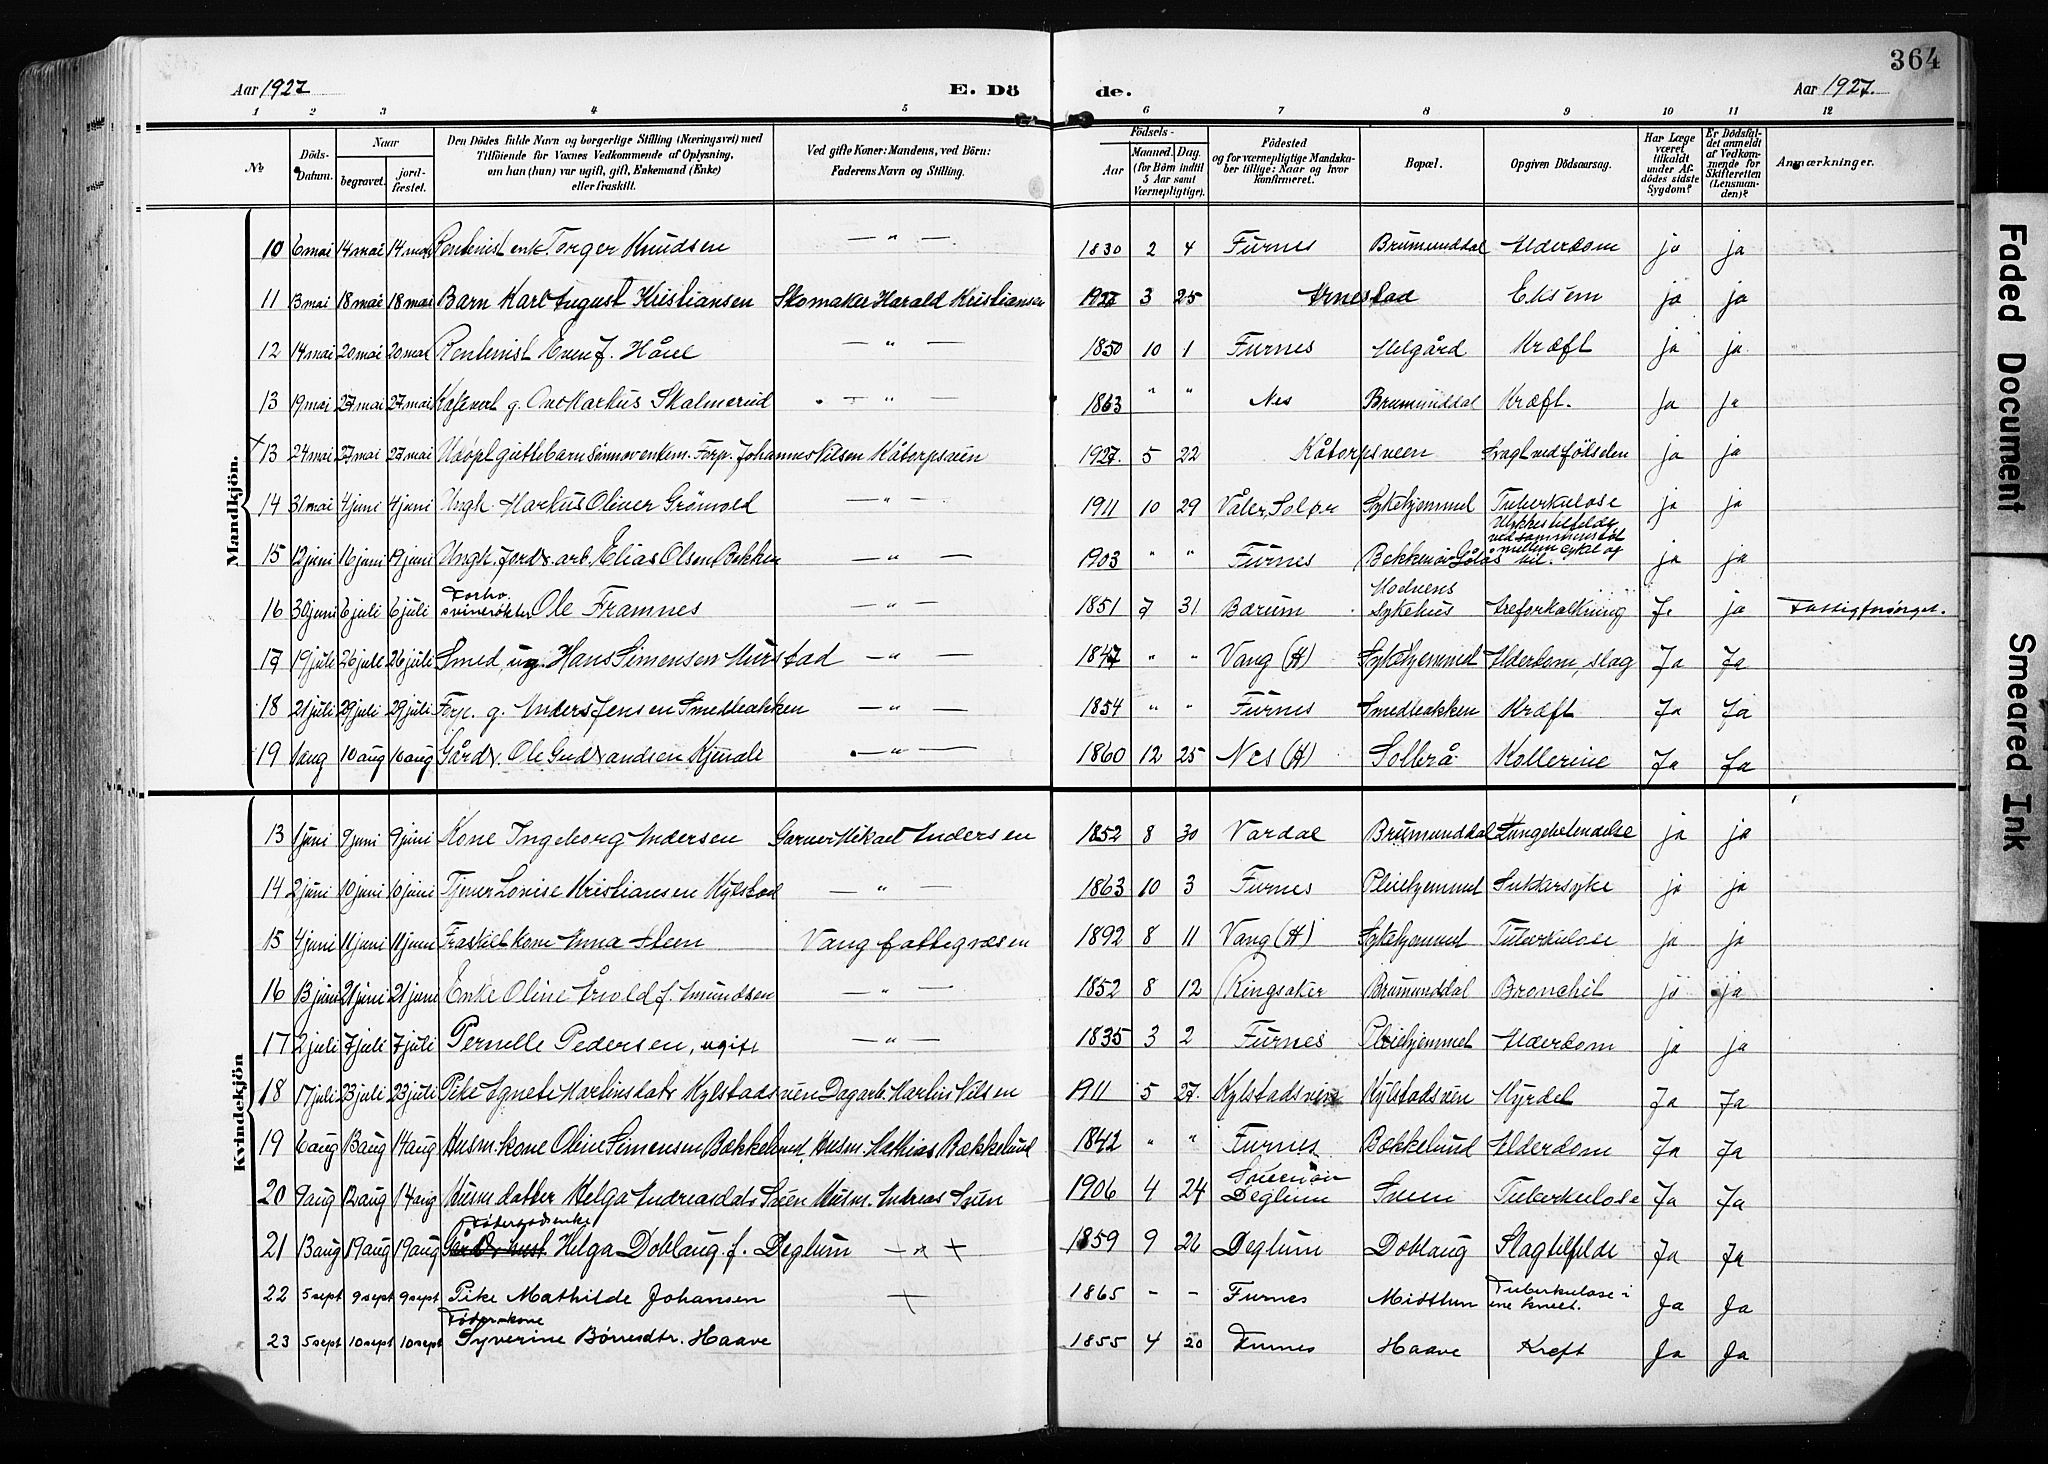 364
Aar 1927 E. Dö de. Aar 1927.
1 2 3 4 5 6 7 8 9 10 11 12
No Döds-Datum. Naar begravet. jord-fæstet. Den Dödes fulde Navn og borgerlige Stilling (Næringsvei) med Tilföiende for Voxnes Vedkommende af Oplysning, om han (hun) var ugift, gift, Enkemand (Enke) eller fraskilt. Ved gifte Koner: Mandens, ved Börn: Faderens Navn og Stilling. Födsels- Aar Maaned. Dag. (for Börn indtil 5 Aar samt Værnepligtige). Födested og for værnepligtige Mandskaber tillige: Naar og hvor konfirmeret. Bopæl. Opgiven Dödsaarsag. Har Læge været tilkaldt under Afdödes sidste Sygdom? Er Dödsfaldet anmeldt af Vedkommende for Skifteretten (Lensmanden)? Anmærkninger.
Mandkjön.
10 6 mai 14 mai 14 mai Rentenist enk. Torger Knudsen — " — 1830 2 4 Furnes Brumunddal Alderdom ja ja
11 13 mai 18 mai 18 mai Barn Karl August Kristiansen Skomaker Harald Kristiansen 1927 3 25 Arnestad Eksem ja ja
12 14 mai 20 mai 20 mai Rentenist Even J. Håve — " — 1850 10 1 Furnes Helgård Kræft ja ja
13 19 mai 27 mai 27 mai g. Markus Skalmerud — " — 1863 " " Nes Brumunddal Kræft. Ja ja
+ 13 24 mai 27 mai 27 mai Udöpt guttebarn Forp. Johannes Nilsen Kåtorpsveen 1927. 5 22 Kåtorpsveen Svagt ved födselen ja ja
14 31 mai 4 juni 4 juni Ungk. Markus Oliver Grönvold — " — 1911 10 29 Våler, Solør Sykehjemmet Tuberkulose ja ja
15 12 juni 16 juni 19 juni Ungk. Jordbr. arb. Elias Olsen Bekken — " — 1903 " " Furnes Bekken Ulykkestilfelde ved sammenstöt mellem cykel og bil. ja ja
16 30 juni 6 juli 6 juli Forhv. svinerøkter Ole Framnes — " — 1851 7 31 Bærum Sykehus Areforkalkning Ja ja Fattigforsørget.
17 19 juli 26 juli 26 juli Smed, ug. Hans Simensen Hurstad — " — 1847 " " Vang (H) Sykehjemmet Alderdom, slag Ja Ja
18 21 juli 29 juli 29 juli Forp. g. Anders Jensen Smedbakken — " — 1854 " " Furnes Smedbakken Kræft Ja Ja
19 1 aug 10 aug 10 aug Gårdbr. Ole Gudbrandsen Kjenale — " — 1860 12 25 Nes (H) Solbrå Kollerine Ja Ja
Kvindekjön
13 1 juni 9 juni 9 juni Kone Ingeborg Andersen Garver Mikael Andersen 1852 8 30 Vardal Brumunddal Lungebetendelse ja ja
14 2 juni 10 juni 10 juni Tjener Lovise Kristiansen Kylstad — " — 1863 10 3 Furnes Pleiehjemmet Sukkersyke ja ja
15 4 juni 11 juni 11 juni Fraskilt kone Anna Steen Vang fattigvæsen 1892 8 11 Vang (H) Sykehjemmet Tuberkulose ja ja
16 13 juni 21 juni 21 juni Enke Oline f. Amundsen — " — 1852 8 12 Ringsaker Brumunddal Bronchit ja ja
17 2 juli 7 juli 7 juli Pernelle Pedersen, ugift — " — 1835 3 2 Furnes Pleiehjemmet Alderdom ja ja
18 17 juli 23 juli 23 juli Pike Agnete Martinsdatr Kylstadsveen Dagarb. Martin Nilsen 1911 5 27. Kylstadsveen Kylstadsveen Ja Ja
19 6 aug 13 aug 14 aug Husm. kone Oline Simensen Bækkelund. Husm. Mathias Bækkelund 1842 " " Furnes Bækkelund Alderdom Ja Ja
20 9 aug 12 aug 14 aug Husm. datter Helga Andreasdatr Sveen Husm. Andreas Sveen 1906 4 24 Sveen Deglum Sveen Tuberkulose Ja Ja
21 13 aug 19 aug 19 aug Helga Doblaug f. Deglum — " — 1859 9 26 Deglum Doblaug Slagtilfelde Ja Ja
22 5 sept 9 sept 9 sept Pike Mathilde Johansen 1865 - - Furnes Midttun Tuberkulose i ene kneet. Ja Ja
23 5 sept 10 sept 10 sept Føder-kone Syverine Børresdtr. Haave 1855 4 20 Furnes Haave Kreft Ja Ja
Faded Document
Smeared Ink